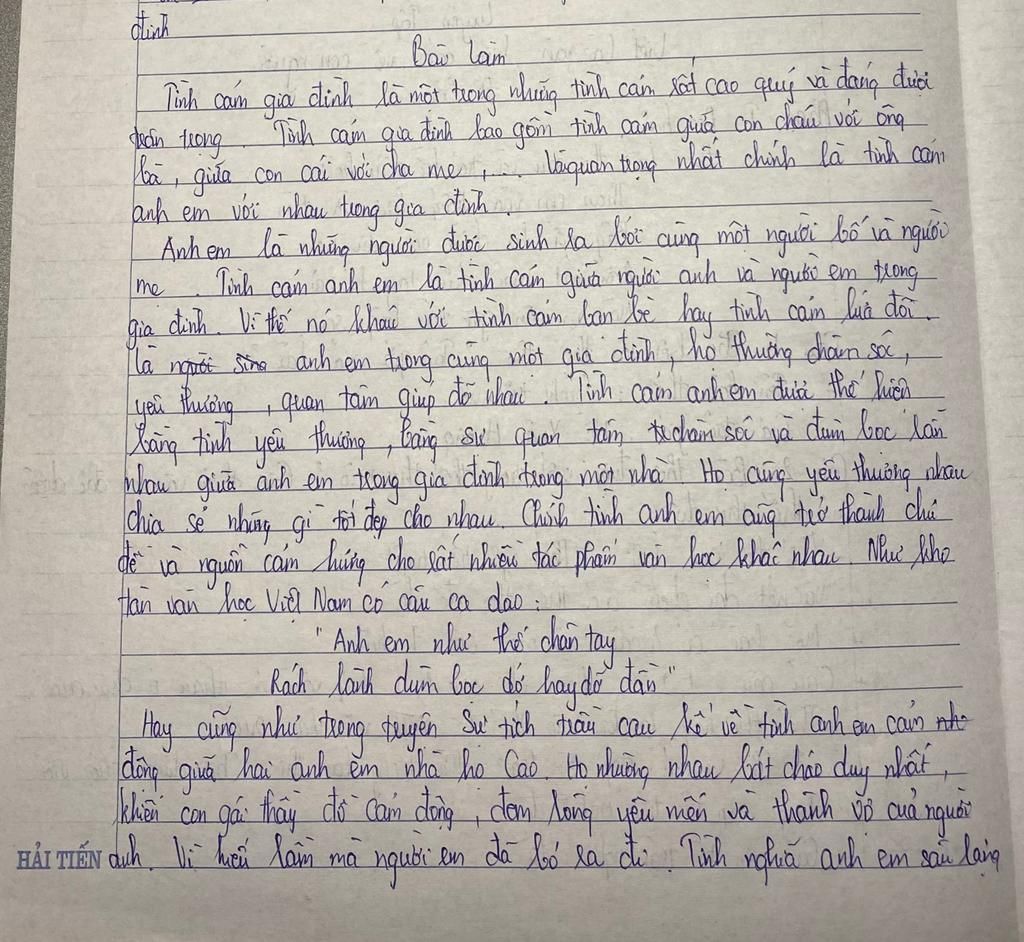 đình
Bài làm
Tình cảm gia đình là một trong những tình cảm rất cao quý và đáng được
trân trọng. Tình cảm gia đình bao gồm tình cảm giữa con cháu với ông
bà, giữa con cái với cha mẹ,... Và quan trọng nhất chính là tình cảm
anh em với nhau trong gia đình.
Anh em là những người được sinh ra bởi cùng một người bố và người
mẹ. Tình cảm anh em là tình cảm giữa người anh và người em trong
gia đình. Vì thế nó khác với tình cảm bạn bè hay tình cảm lứa đôi.
Là anh em trong cùng một gia đình, họ thường chăm sóc,
yêu thương, quan tâm giúp đỡ nhau. Tình cảm anh em được thể hiện
bằng tình yêu thương, bằng sự quan tâm, chăm sóc và đùm bọc lẫn
nhau giữa anh em trong gia đình trong một nhà. Họ cũng yêu thương nhau
chia sẻ những gì tốt đẹp cho nhau. Chính tình anh em cũng trở thành chủ
đề và nguồn cảm hứng cho rất nhiều tác phẩm văn học khác nhau. Như kho
tàn văn học Việt Nam có câu ca dao:
"Anh em như thể chân tay
Rách lành đùm bọc dở hay đỡ đần"
Hay cũng như trong truyện Sự tích trầu cau kể về tình anh em cảm
động giữa hai anh em nhà họ Cao. Họ nhường nhau bát cháo duy nhất,
khiến con gái thầy đồ cảm động, đem lòng yêu mến và thành vợ của người
anh. Vì hiểu lầm mà người em đã bỏ ra đi. Tình nghĩa anh em sâu lặng
HẢI TIẾN